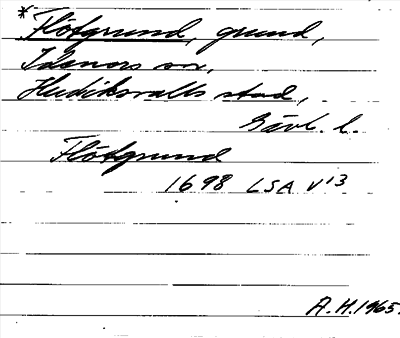 *Flötgrund, grund,
Idenors sn,
Hudiksvalls stad,
Gävl. l.
Flötgrund
1698 LSA V13
A.H. 1965.